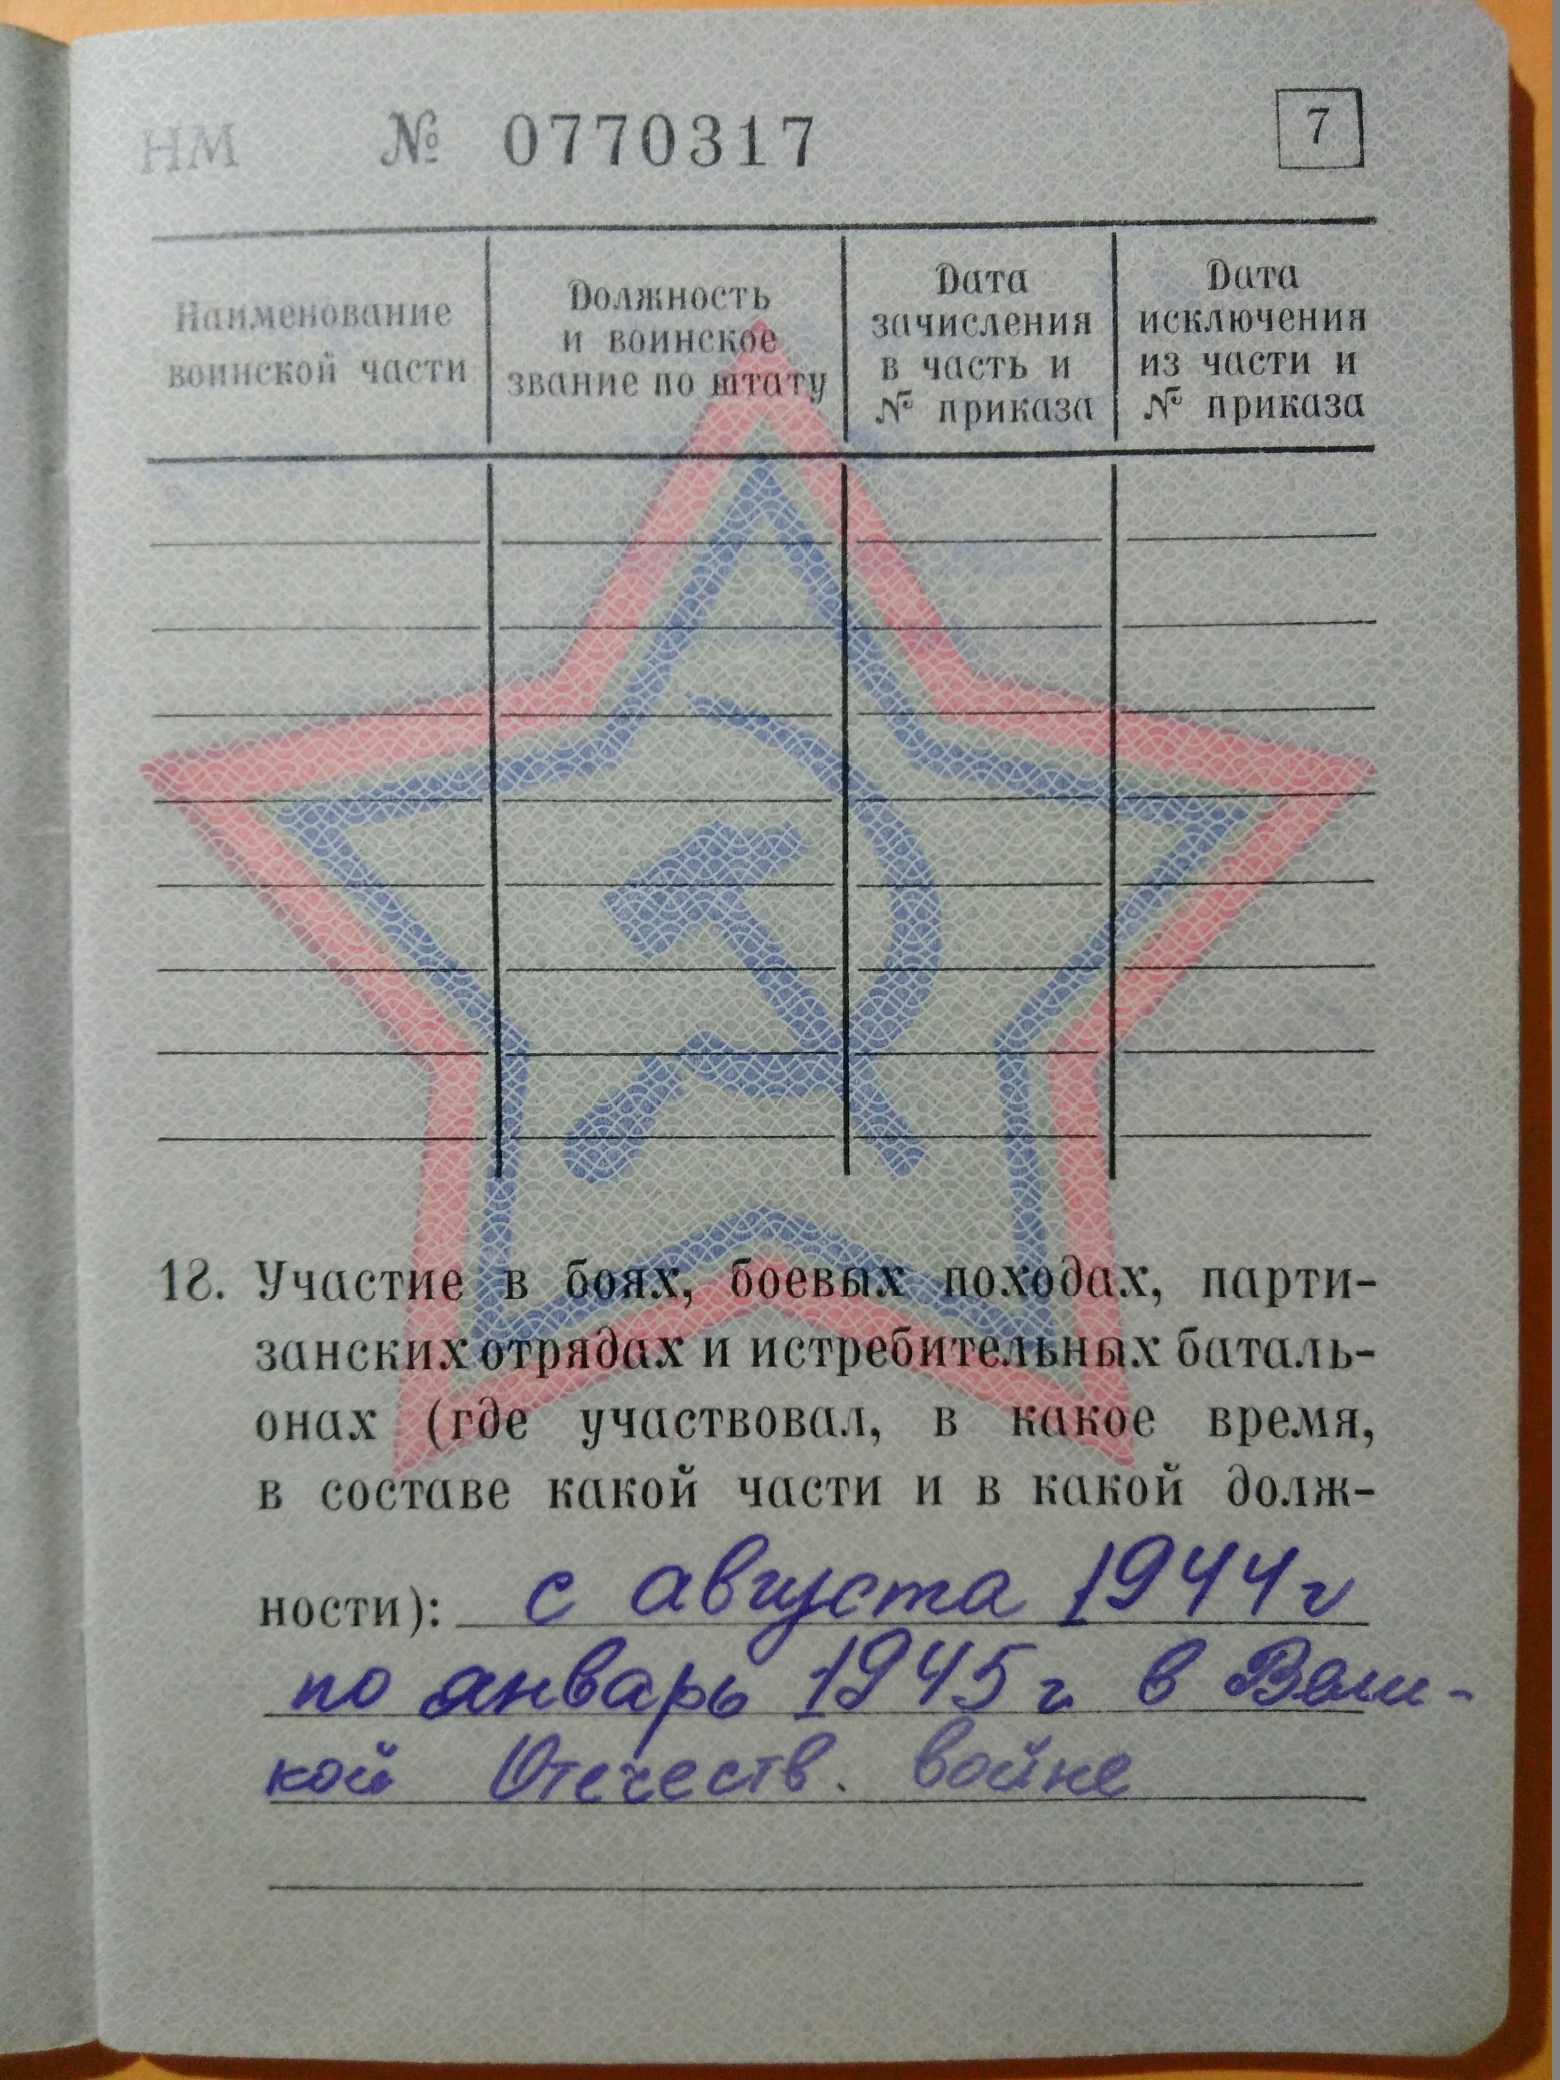 НМ № 0770317 7
Наименование
воинской части
Должность
и воинское
звание по штату
Дата
зачисления
в часть и
№ приказа
Дата
исключения
из части и
№ приказа
18. Участие в боях, боевых походах, парти-
занских отрядах и истребительных баталь-
онах (где участвовал, в какое время,
в составе какой части и в какой долж-
ности): с августа 1944 г
по январь 1945 г. в Вели-
кой Отечеств. войне